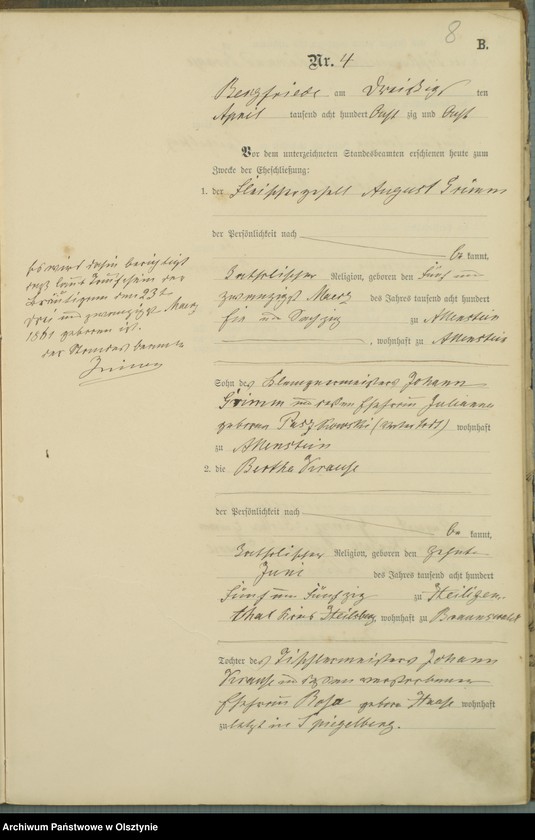 8
B.
Nr. 4
Bergfriede am Dreißigs ten
April tausend acht hundert Acht zig und Acht
Vor dem unterzeichneten Standesbeamten erschienen heute zum
Zwecke der Eheschließung:
1. der Fleischergesell August Grimm
der Persönlichkeit nach
be kannt,
katholischer Religion, geboren den Fünf und
zwanzigst Maerz des Jahres tausend acht hundert
und Sechzig zu Allenstein
, wohnhaft zu Allenstein
Sohn des Klempnermeisters Johann
Grimm und dessen Ehefrau Julianna
geborene wohnhaft
zu Allenstein
2. die Bertha Krause
der Persönlichkeit nach
be kannt,
katholischer Religion, geboren den zehnten
Juni des Jahres tausend acht hundert
Fünf und Fünfzig zu Heiligen-
thal Kreis Heilsberg wohnhaft zu Braunswalde
Tochter des Tischlermeisters Johann
Krause und dessen verstorbenen
Ehefrau Rosa geboren Haase wohnhaft
zuletzt in Spiegelberg.
Es wird dahin berichtigt
daß laut Taufschein der
Bräutigam den 23t
drei und zwanzigst Maerz
1861 geboren ist.
der Standesbeamte
Archiwum Państwowe w Olsztynie